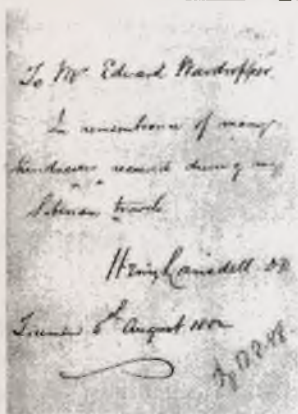 To Mr Edward Wardropper
In remembrance of many
kindnesses received during my
Siberian travels
Henry Lansdell. D.D.
6th August 1882